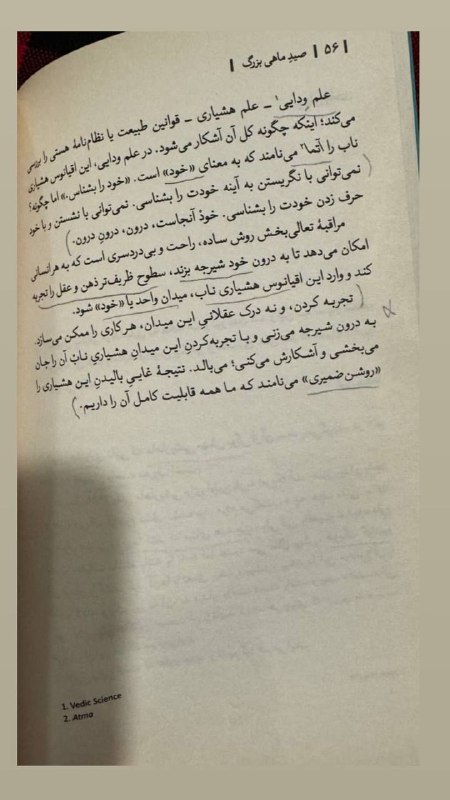 | ۵۶ | صیدِ ماهی بزرگ |
علم وِدایی۱ – علم هشیاری – قوانین طبیعت یا نظام‌نامهٔ هستی را بررسی
می‌کند؛ اینکه چگونه کل آن آشکار می‌شود. در علم ودایی، این اقیانوس هشیاری
ناب را آتما۲ می‌نامند که به معنای «خود» است. «خود را بشناس.» اما چگونه؟
نمی‌توانی با نگریستن به آینه خودت را بشناسی. نمی‌توانی با نشستن و با خود
حرف زدن خودت را بشناسی. خودْ آنجاست، درون، درونِ درون.
مراقبهٔ تعالی‌بخش روش ساده، راحت و بی‌دردسری است که به هر انسانی
امکان می‌دهد تا به درون خود شیرجه بزند، سطوح ظریف‌تر ذهن و عقل را تجربه
کند و وارد این اقیانوس هشیاری ناب، میدان واحد یا «خود» شود.
تجربه کردن، و نه درک عقلانیِ این میدان، هر کاری را ممکن می‌سازد.
به درون شیرجه می‌زنی و با تجربه‌کردنِ این میدانِ هشیاریِ ناب آن را جان
می‌بخشی و آشکارش می‌کنی؛ می‌بالد. نتیجهٔ غاییِ بالیدنِ این هشیاری را
«روشن‌ضمیری» می‌نامند که ما همه قابلیت کامل آن را داریم.
1. Vedic Science
2. Atma